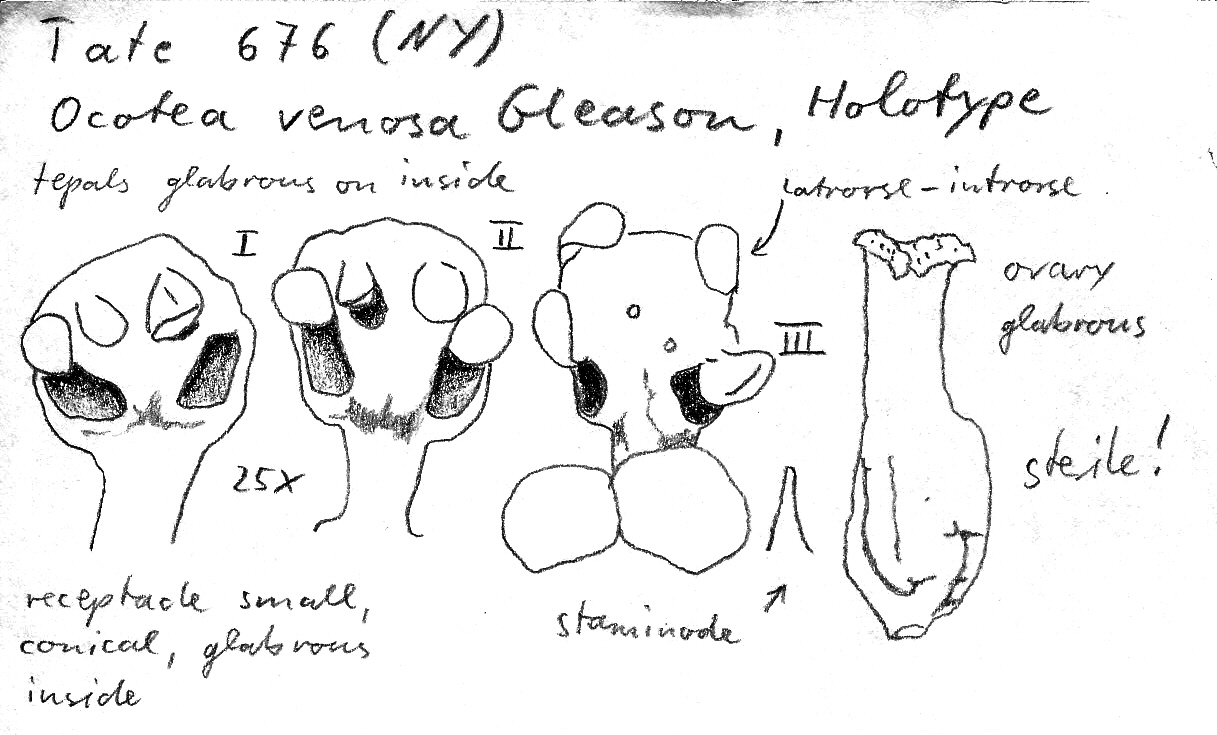 Tate 676 (NY)
Ocotea venosa Gleason, Holotype
tepals glabrous on inside
latrorse-introrse
I
II
III
ovary
glabrous
25x
sterile!
staminode
receptacle small,
conical, glabrous
inside